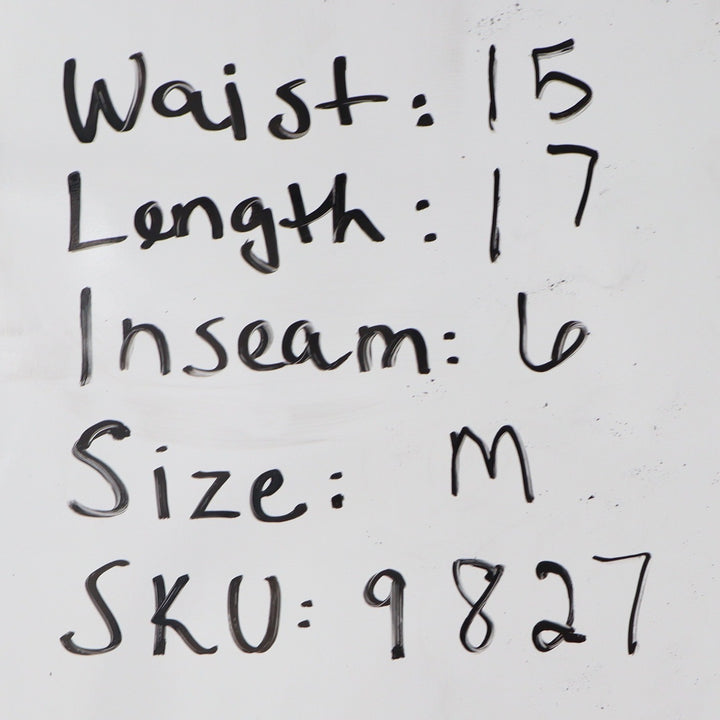 Waist: 15
Length: 17
Inseam: 6
Size: M
SKU: 9827